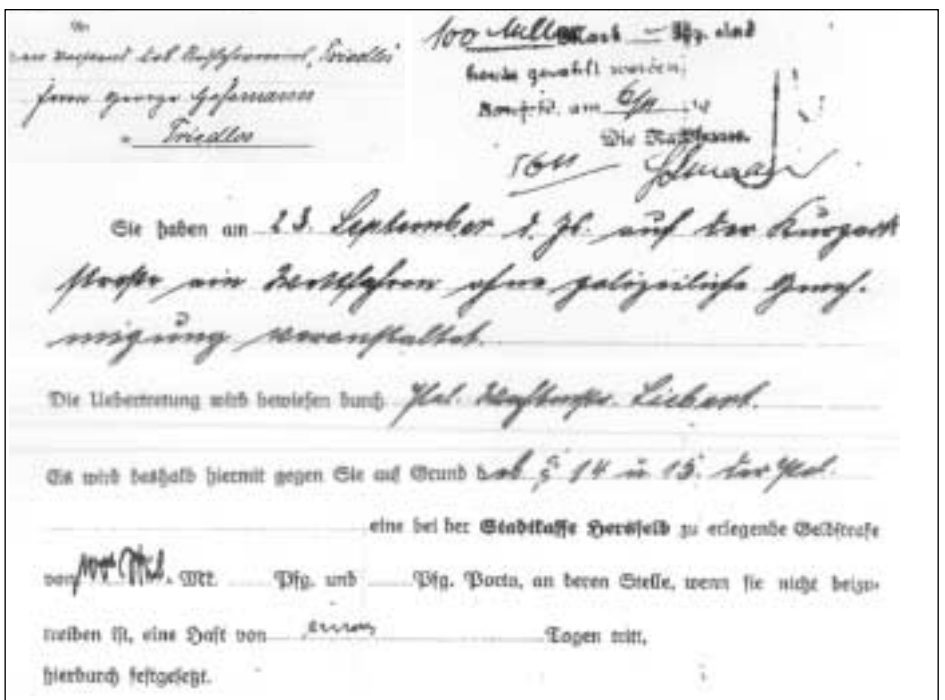 An
Vorstand des Radfahrvereins, Friedlos
Herrn George
Friedlos
100 Millionen Mark — Pfg. sind
heute gezahlt worden.
Hersfeld, am 6/11
Die Stadtkasse.
Sie haben am 23. September d. Js. auf der Kurpark
straße ein Wettfahren ohne polizeiliche Geneh-
migung veranstaltet.
Die Uebertretung wird bewiesen durch Pol. Wachtmstr. Liebert.
Es wird deshalb hiermit gegen Sie auf Grund des § 14 u 15. der Pol.
eine bei der Stadtkasse Hersfeld zu erlegende Geldstrafe
von 100 Mil. Mk. Pfg. und Pfg. Porto, an deren Stelle, wenn sie nicht beizu-
treiben ist, eine Haft von einem Tagen tritt,
hierdurch festgesetzt.